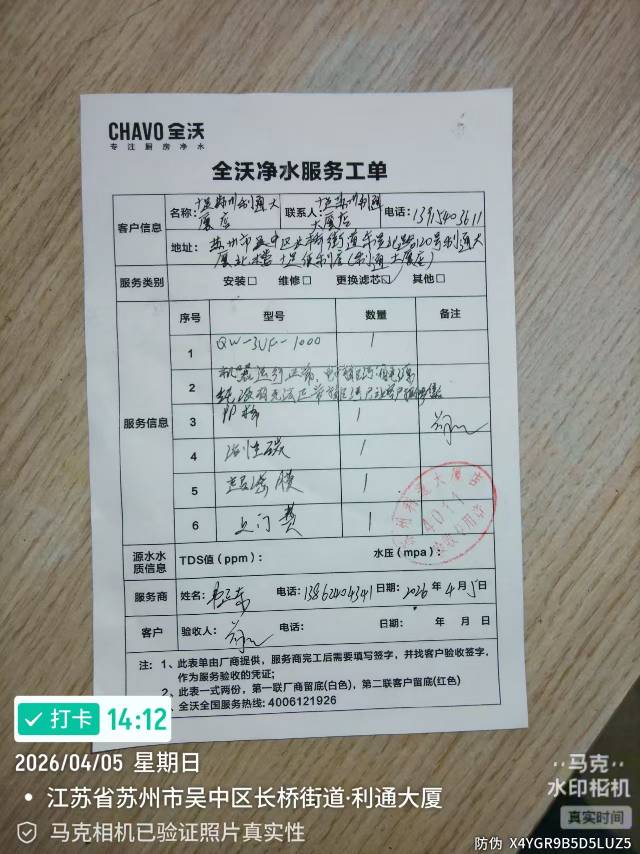 CHAVO 全沃
专注厨房净水
全沃净水服务工单
客户信息
名称: 苏州利通大厦店
联系人: 苏州利通大厦店
电话: 13915403611
地址: 苏州市吴中区长桥街道 120号利通大厦北楼 便利店(利通大厦店)
服务类别 安装□ 维修□ 更换滤芯☑ 其他□
服务信息
序号 型号 数量 备注
1 QW-3UF-1000 1
2 机器运行正常,
3 阻垢 1
4 活性碳 1
5 超滤膜 1
6 上门费 1
4011
验收专用章
源水水质信息 TDS值(ppm): 水压(mpa):
服务商 姓名: 电话: 13862404341 日期: 2026 年 4 月 5 日
客户 验收人: 电话: 日期: 年 月 日
注: 1、此表单由厂商提供,服务商完工后需要填写签字,并找客户验收签字,
作为服务验收的凭证;
2、此表一式两份,第一联厂商留底(白色),第二联客户留底(红色)
、全沃全国服务热线: 4006121926
打卡 14:12
2026/04/05 星期日
江苏省苏州市吴中区长桥街道·利通大厦
马克相机已验证照片真实性
马克
水印相机
真实时间
防伪 X4YGR9B5D5LUZ5